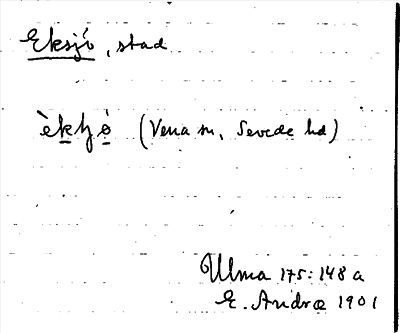 Eksjö, stad
èkʞö̀ (Vena sn, Sevede hd)
Ulma 175:148 a
E. Andræ 1901